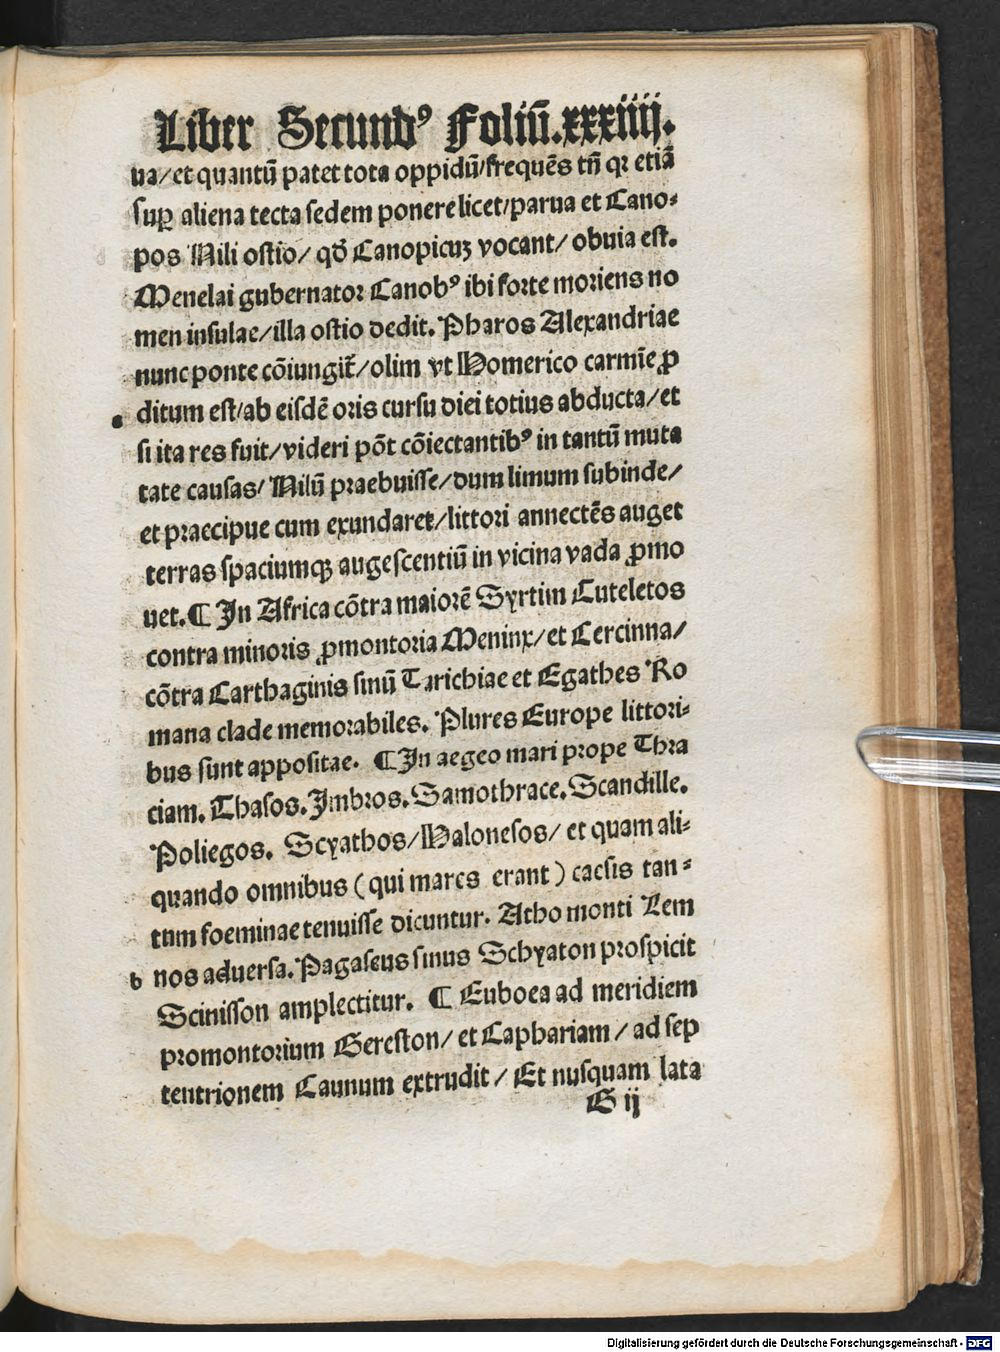 Liber Secundꝰ Foliũ.xxxiiij.
ua/et quantũ patet tota oppidũ/frequẽs tñ qꝛ etiã
ſuꝑ aliena tecta ſedem ponere licet/parua et Cano⸗
pos Nili oſtio/ qđ Canopicuꝫ vocant/ obuia eſt.
Menelai gubernatoꝛ Canobꝰ ibi foꝛte moꝛiens no
men inſulae/illa oſtio dedit. Pharos Alexandriae
nunc ponte cõiungit̃/olim vt Homerico carmĩe ꝓ
ditum eſt/ab eiſdẽ oꝛis curſu diei totius abducta/et
ſi ita res fuit/videri põt cõiectantibꝰ in tantũ muta
tate cauſas/ Nilũ praebuiſſe/dum limum ſubinde/
et pꝛaecipue cum exundaret/littoꝛi annectẽs auget
terras ſpaciumqꝫ augeſcentiũ in vicina vada ꝓmo
uet.¶ In Africa cõtra maioꝛẽ Syrtim Cuteletos
contra minoꝛis ꝓmontoꝛia Meninx/et Cercinna/
cõtra Carthaginis ſinũ Tarichiae et Egathes Ro
mana clade memoꝛabiles. Plures Europe littoꝛi⸗
bus ſunt appoſitae. ¶In aegeo mari pꝛope Thra
ciam.Thaſos.Imbꝛos.Samothrace.Scandille.
Poliegos. Scyathos/Haloneſos/ et quam ali⸗
quando omnibus (qui mares erant) caeſis tan⸗
tum foeminae tenuiſſe dicuntur. Atho monti Lem
b nos aduerſa.Pagaſeus ſinus Schyaton pꝛoſpicit
Sciniſſon amplectitur. ¶ Euboea ad meridiem
pꝛomontoꝛium Gereſton/ et Caphariam/ ad ſep
tentrionem Caunum extrudit/ Et nuſquam lata
G ij
Digitalisierung gefördert durch die Deutsche Forschungsgemeinschaft - DFG